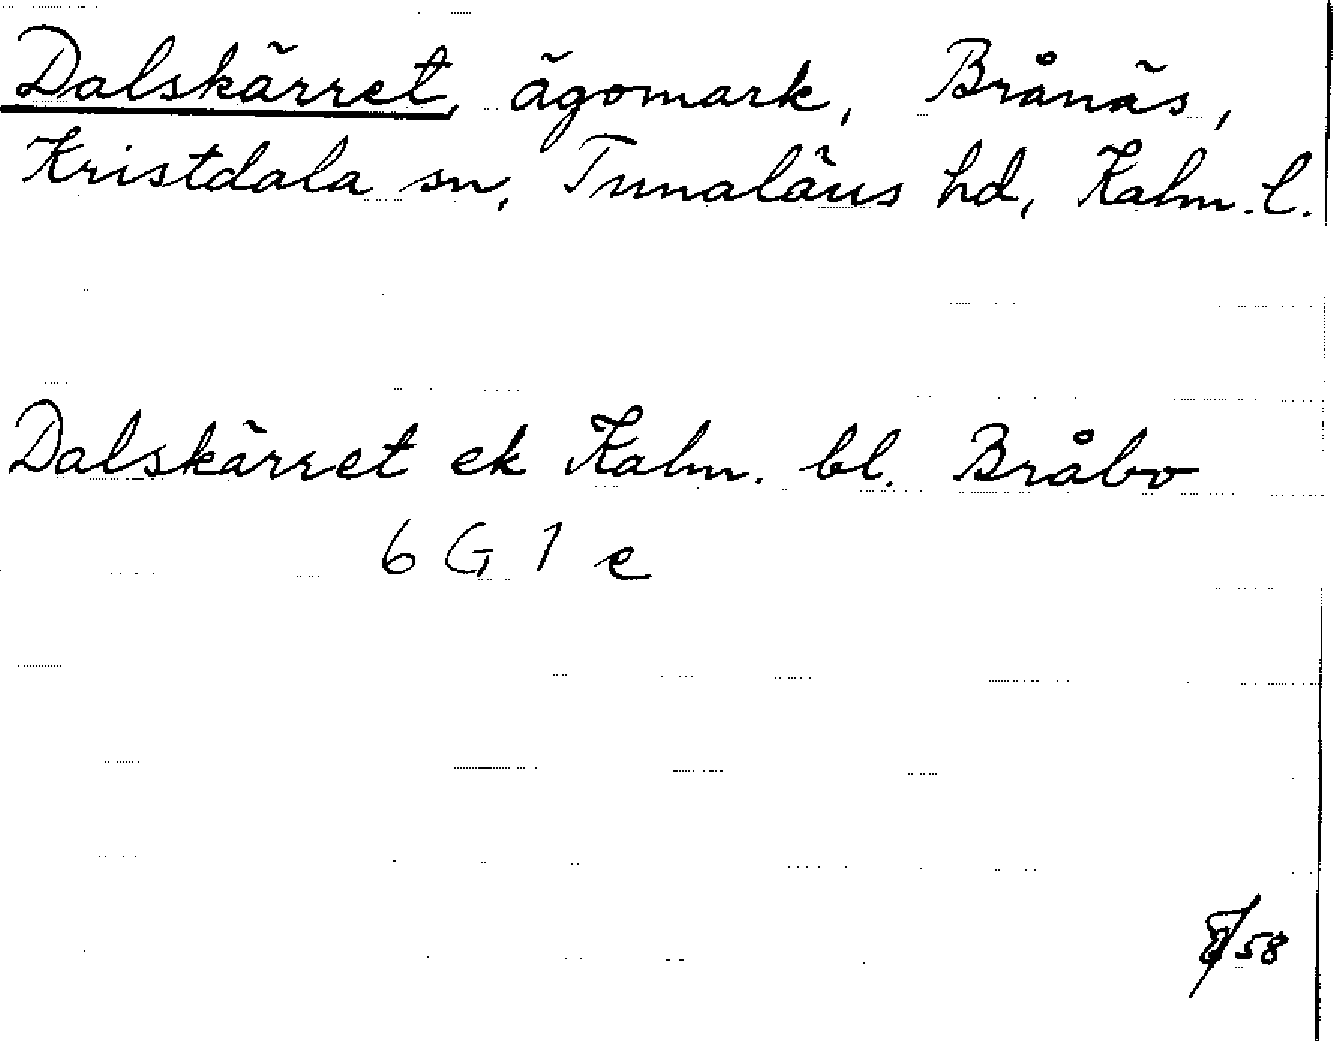 Dalskärret, ägomark, Brånäs,
Kristdala sn, Tunaläns hd, Kalm. l.
Dalskärret ek Kalm. bl. Bråbo
6 G 1 e
58